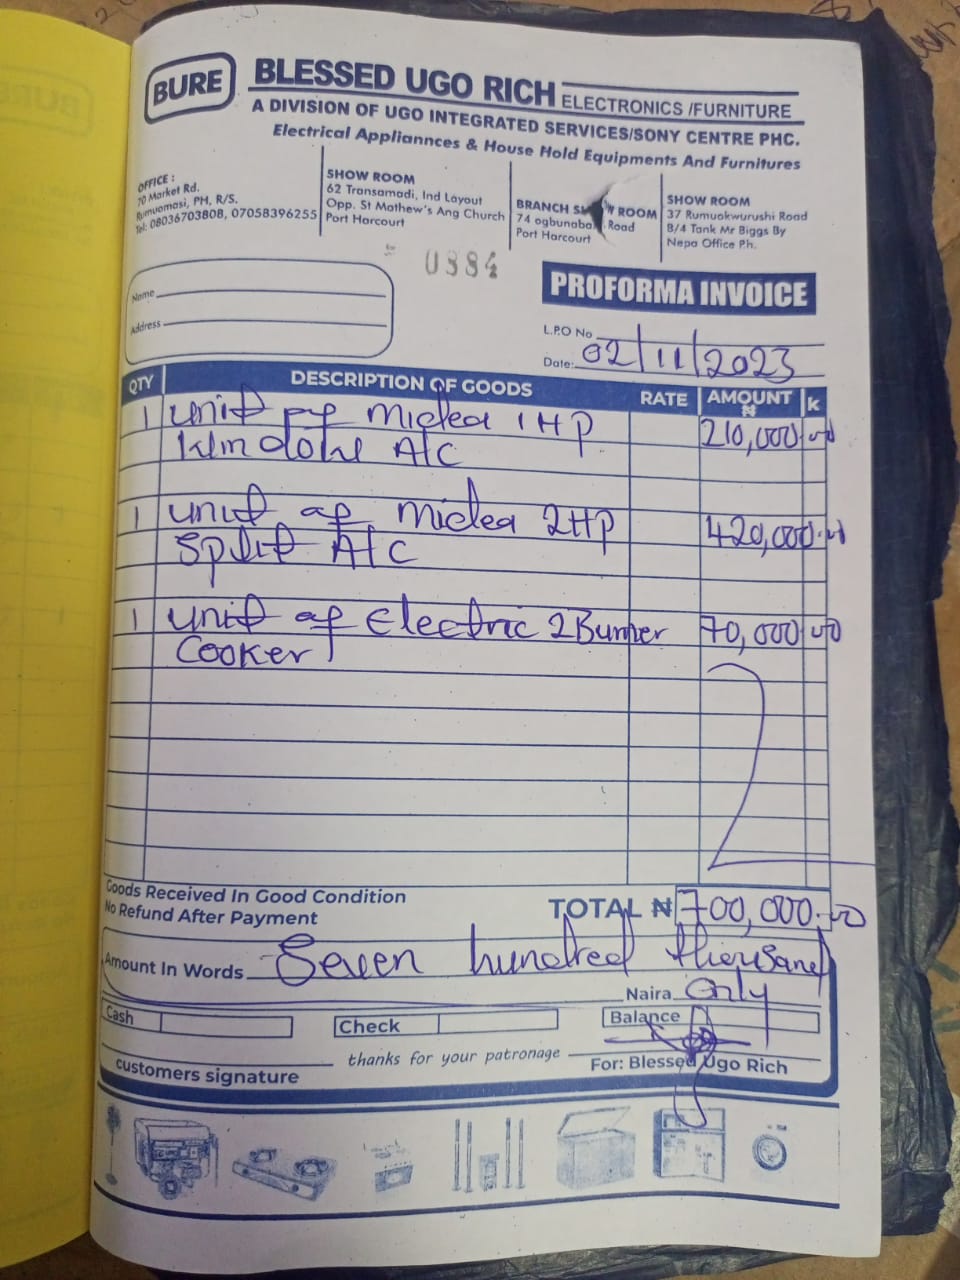 BURE
BLESSED UGO RICH ELECTRONICS /FURNITURE
A DIVISION OF UGO INTEGRATED SERVICES/SONY CENTRE PHC.
Electrical Appliannces & House Hold Equipments And Furnitures
OFFICE :
70 Market Rd.
Rumuomasi, PH, R/S.
Tel: 08036703808, 07058396255
SHOW ROOM
62 Transamadi, Ind Layout
Opp. St Mathew's Ang Church
Port Harcourt
BRANCH ROOM
74 Road
Port Harcourt
SHOW ROOM
37 Rumuokwurushi Road
B/4 Tank Mr Biggs By
Nepa Office Ph.
0884
PROFORMA INVOICE
Name
Address
L.P.O No
Date: 02/11/2023
QTY DESCRIPTION OF GOODS RATE AMOUNT ₦ k
1 unit of midea 1HP 210,000.00
A/C
1 unit of midea 2HP 420,000.00
Split A/C
1 unit of Electric 2Burner 70,000.00
Cooker
Goods Received In Good Condition
No Refund After Payment
TOTAL ₦ 700,000.00
Amount In Words Seven hundred thousand
Naira Only
Cash Check Balance
customers signature
thanks for your patronage
For: Blessed Ugo Rich